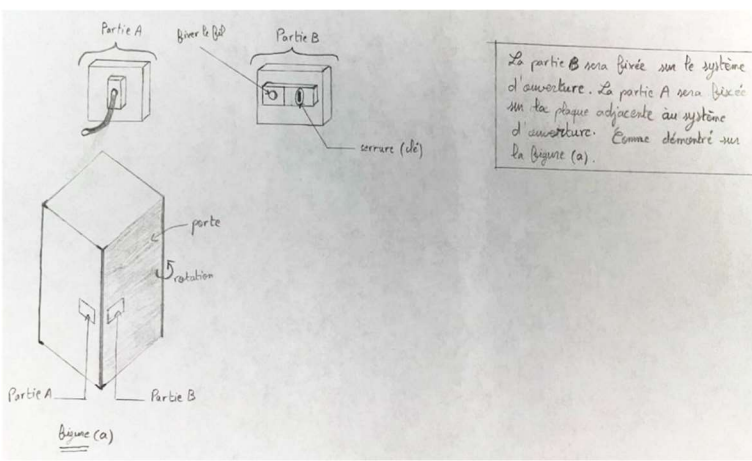 Partie A
fixer le fil
Partie B
serrure (clé)
La partie B sera fixée sur le système
d'ouverture. La partie A sera fixée
sur la plaque adjacente au système
d'ouverture. Comme démontré sur
la figure (a).
porte
rotation
Partie A
Partie B
figure (a)